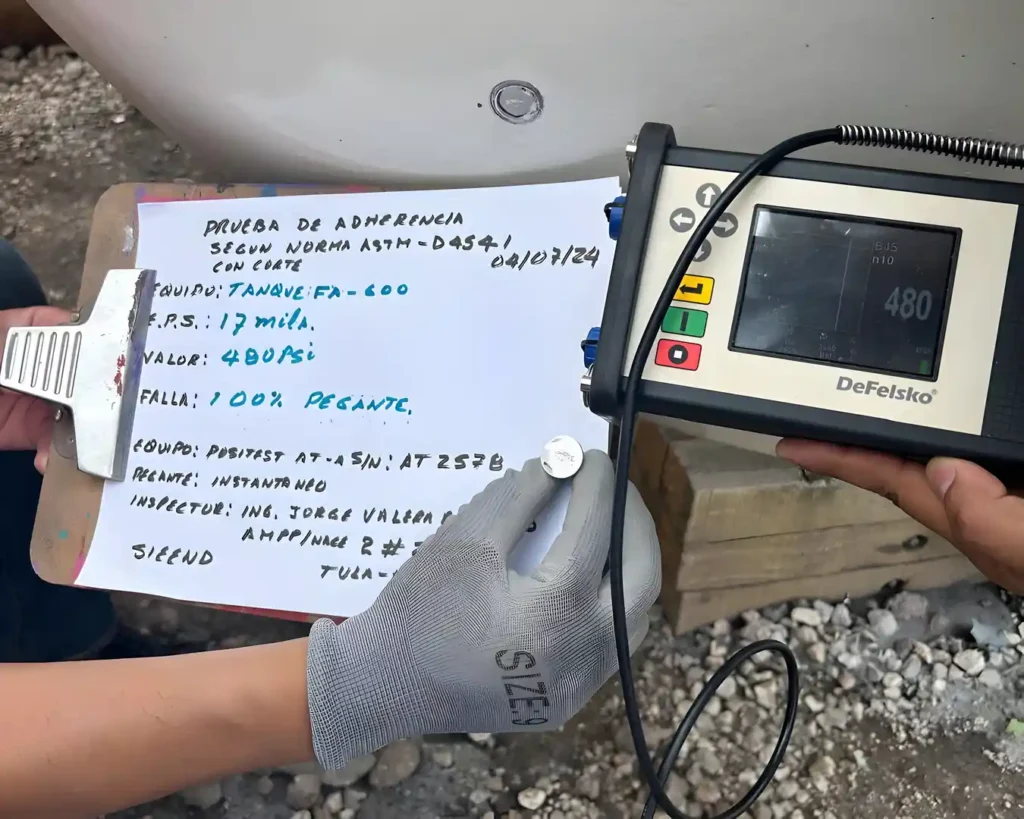 PRUEBA DE ADHERENCIA
SEGUN NORMA ASTM-D4541
CON CORTE
04/07/24
EQUIPO: TANQUE: FA-600
E.P.S.: 17 mils.
VALOR: 480 PSi
FALLA: 100% PEGANTE.
EQUIPO: POSITEST AT-A S/N: AT 2578
PEGANTE: INSTANTANEO
INSPECTOR: ING. JORGE VALERA
AMPP/NACE 2 #
SIEEND
TULA-
n10
480
DeFelsko®
SIZE:9